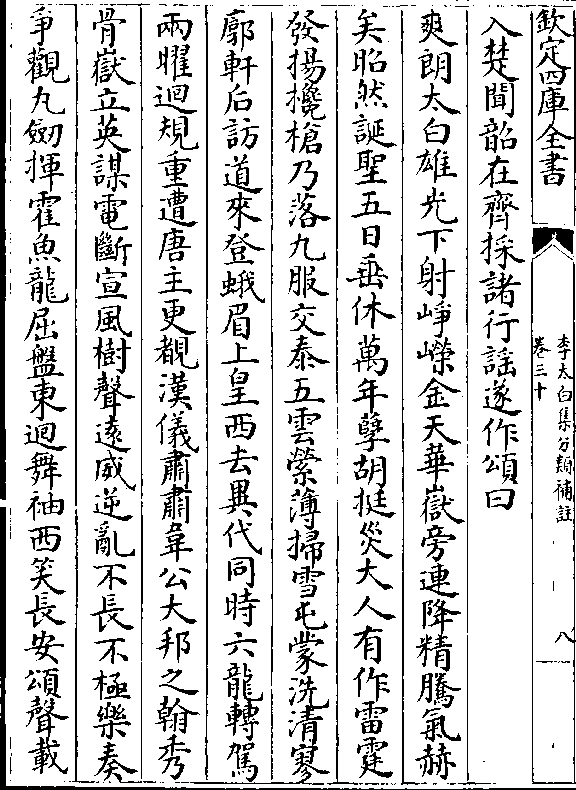 欽定四庫全書
李太白集分類補註
卷三十
八
入楚聞韶在齊採諸行謡遂作頌曰
爽朗太白雄光下射崢嶸金天華嶽旁連降精騰氣赫
矣昭然誕聖五日垂休萬年孽胡挺災大人有作雷霆
發揚攙槍乃落九服交泰五雲縈薄掃雪屯蒙洗清寥
廓軒后訪道來登蛾眉上皇西去異代同時六龍轉駕
兩曜迴規重遭唐主更覩漢儀肅肅韋公大邦之翰秀
骨嶽立英謀電斷宣風樹聲遠威逆亂不長不極樂奏
爭觀九劒揮霍魚龍屈盤東迴舞袖西笑長安頌聲載